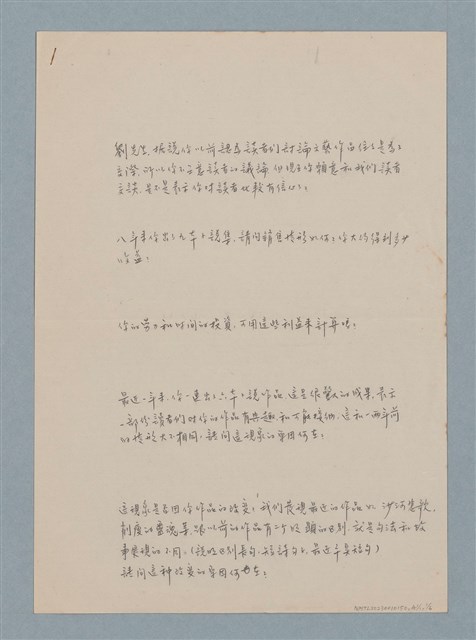 1
劉先生，據說你以前認為讀者們討論文藝作品往往是為了
交際，所以你不在意讀者的議論，但現在你願意和我們讀者
交談，是不是表示你對讀者比較有信心？
八年來你出了九本小說集，請問銷售情形如何？你大約得利多少
收益？
你的勞力和時間的投資，可用這些利益來計算嗎？
最近一年來，你一連出了六本小說作品，這是很驚人的成果，表示
一部份讀者們對你的作品有興趣，和可能接納，這和一兩年前
的情形大不相同，請問這現象的原因何在？
這現象是否因你作品的改變？我們發現最近的作品如 沙河悲歌，
削瘦的靈魂等，跟以前的作品有一個明顯的區別，就是句法和故
事表現的不同。（說明以前長句，短詩句，最近多是短句）
請問這種改變的原因何在？